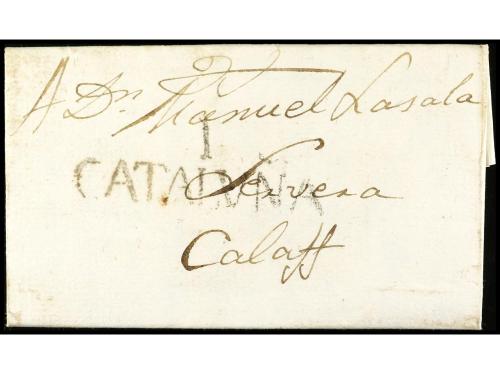 A Dn. Manuel Lasala
1
CATALUÑA
Servera
Calaff